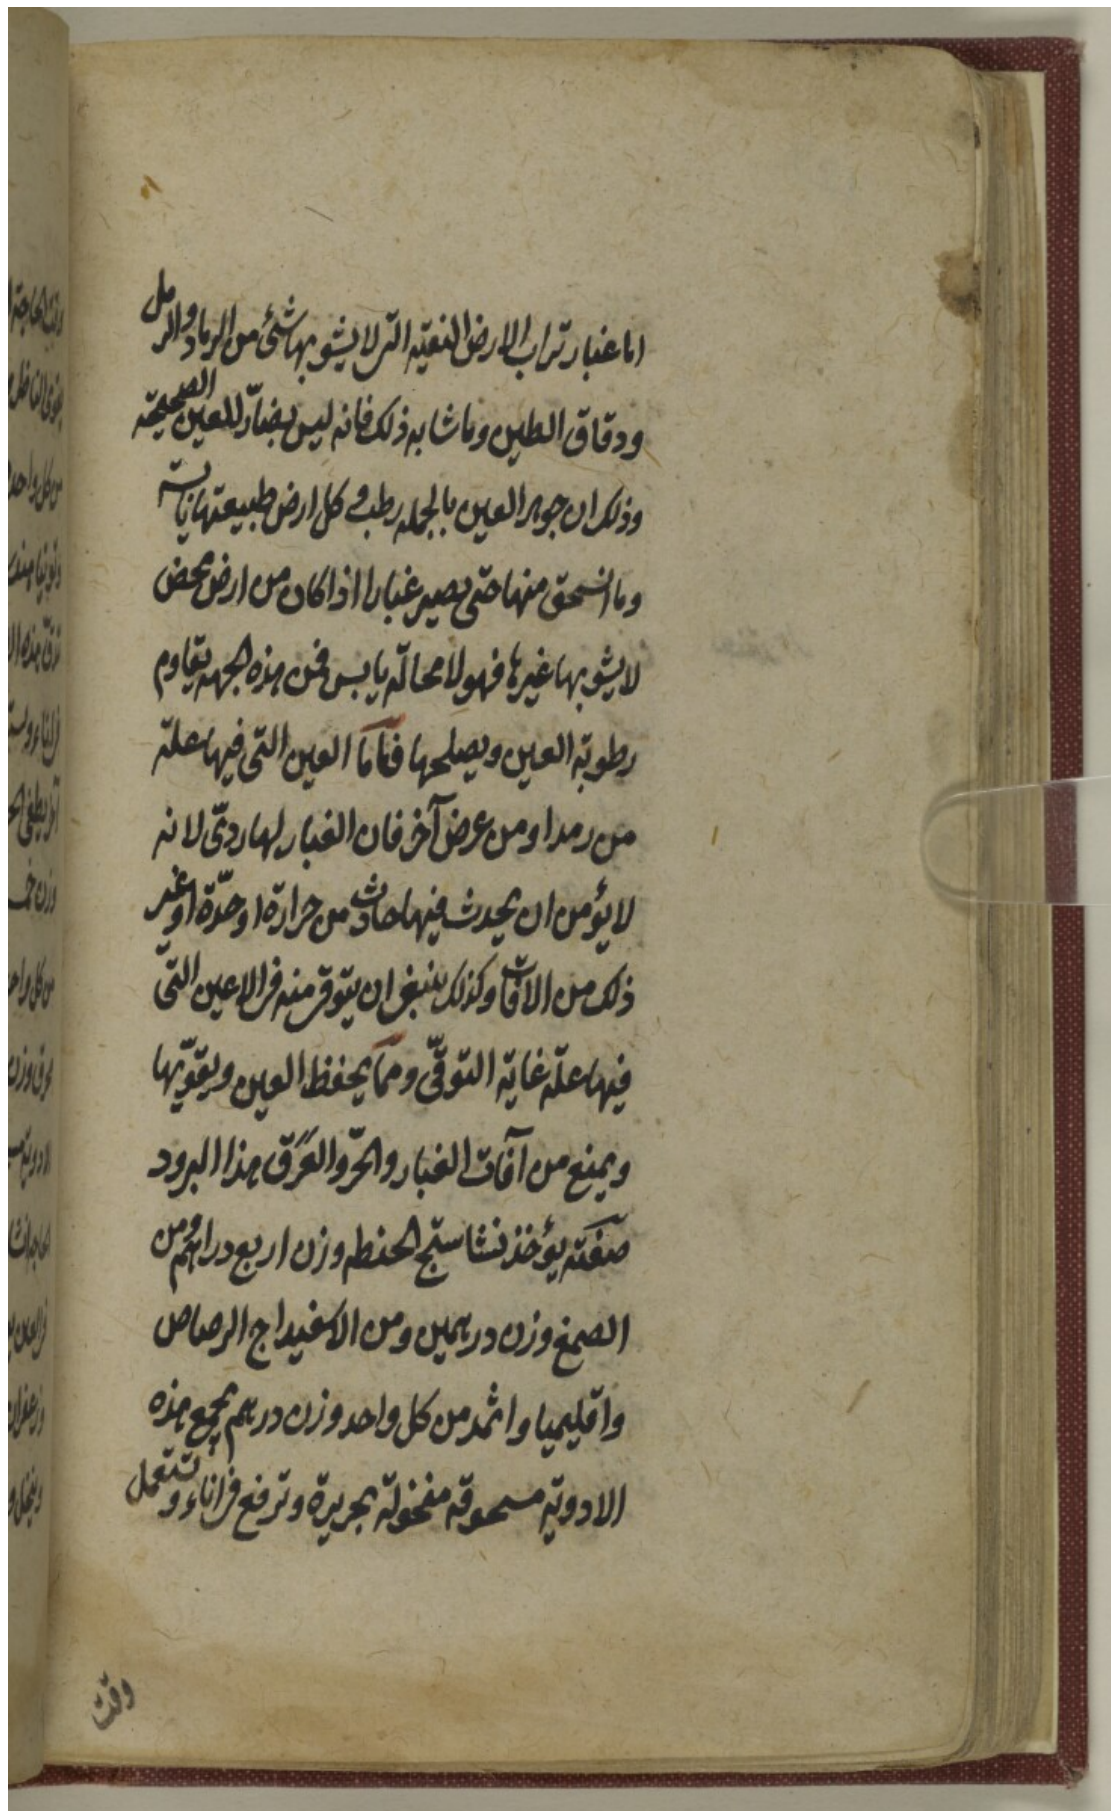 اما غبار تراب الارض النقيه التى لا يشوبها شئ من الرماد والرمل
ودقاق الطين وما شابه ذلك فانه ليس بضارّ للعين الصحيحة
وذلك ان جوهر العين بالجمله رطب وكل ارض طبيعتها يابسة
وما انسحق منها حتى يصير غبارا اذا كان من ارض محض
لا يشوبها غيرها فهو لا محالة يابس فمن هذه الجهه يقاوم
رطوبة العين ويصلحها فامّا العين التى فيها علة
من رمد او من عرض آخر فان الغبار لها ردىّ لانه
لا يؤمن ان يحدث فيها حادث من حرارة او حدّة او غير
ذلك من الافات وكذلك ينبغى ان يتوقى منه فى الاعين التى
فيها علّة غاية التوقّى وممّا يحفظ العين ويقوّيها
ويمنع من آفات الغبار والحرّ والعَرَق هذا البرود
صفته يؤخذ نشاستج الحنطه وزن اربع دراهم ومن
الصمغ وزن درهمين ومن الاسفيداج الرصاص
واقليميا واثمد من كل واحد وزن درهم يجمع هذه
الادوية مسحوقة منخولة بحريرة وترفع فى اناء وتستعمل
وقت